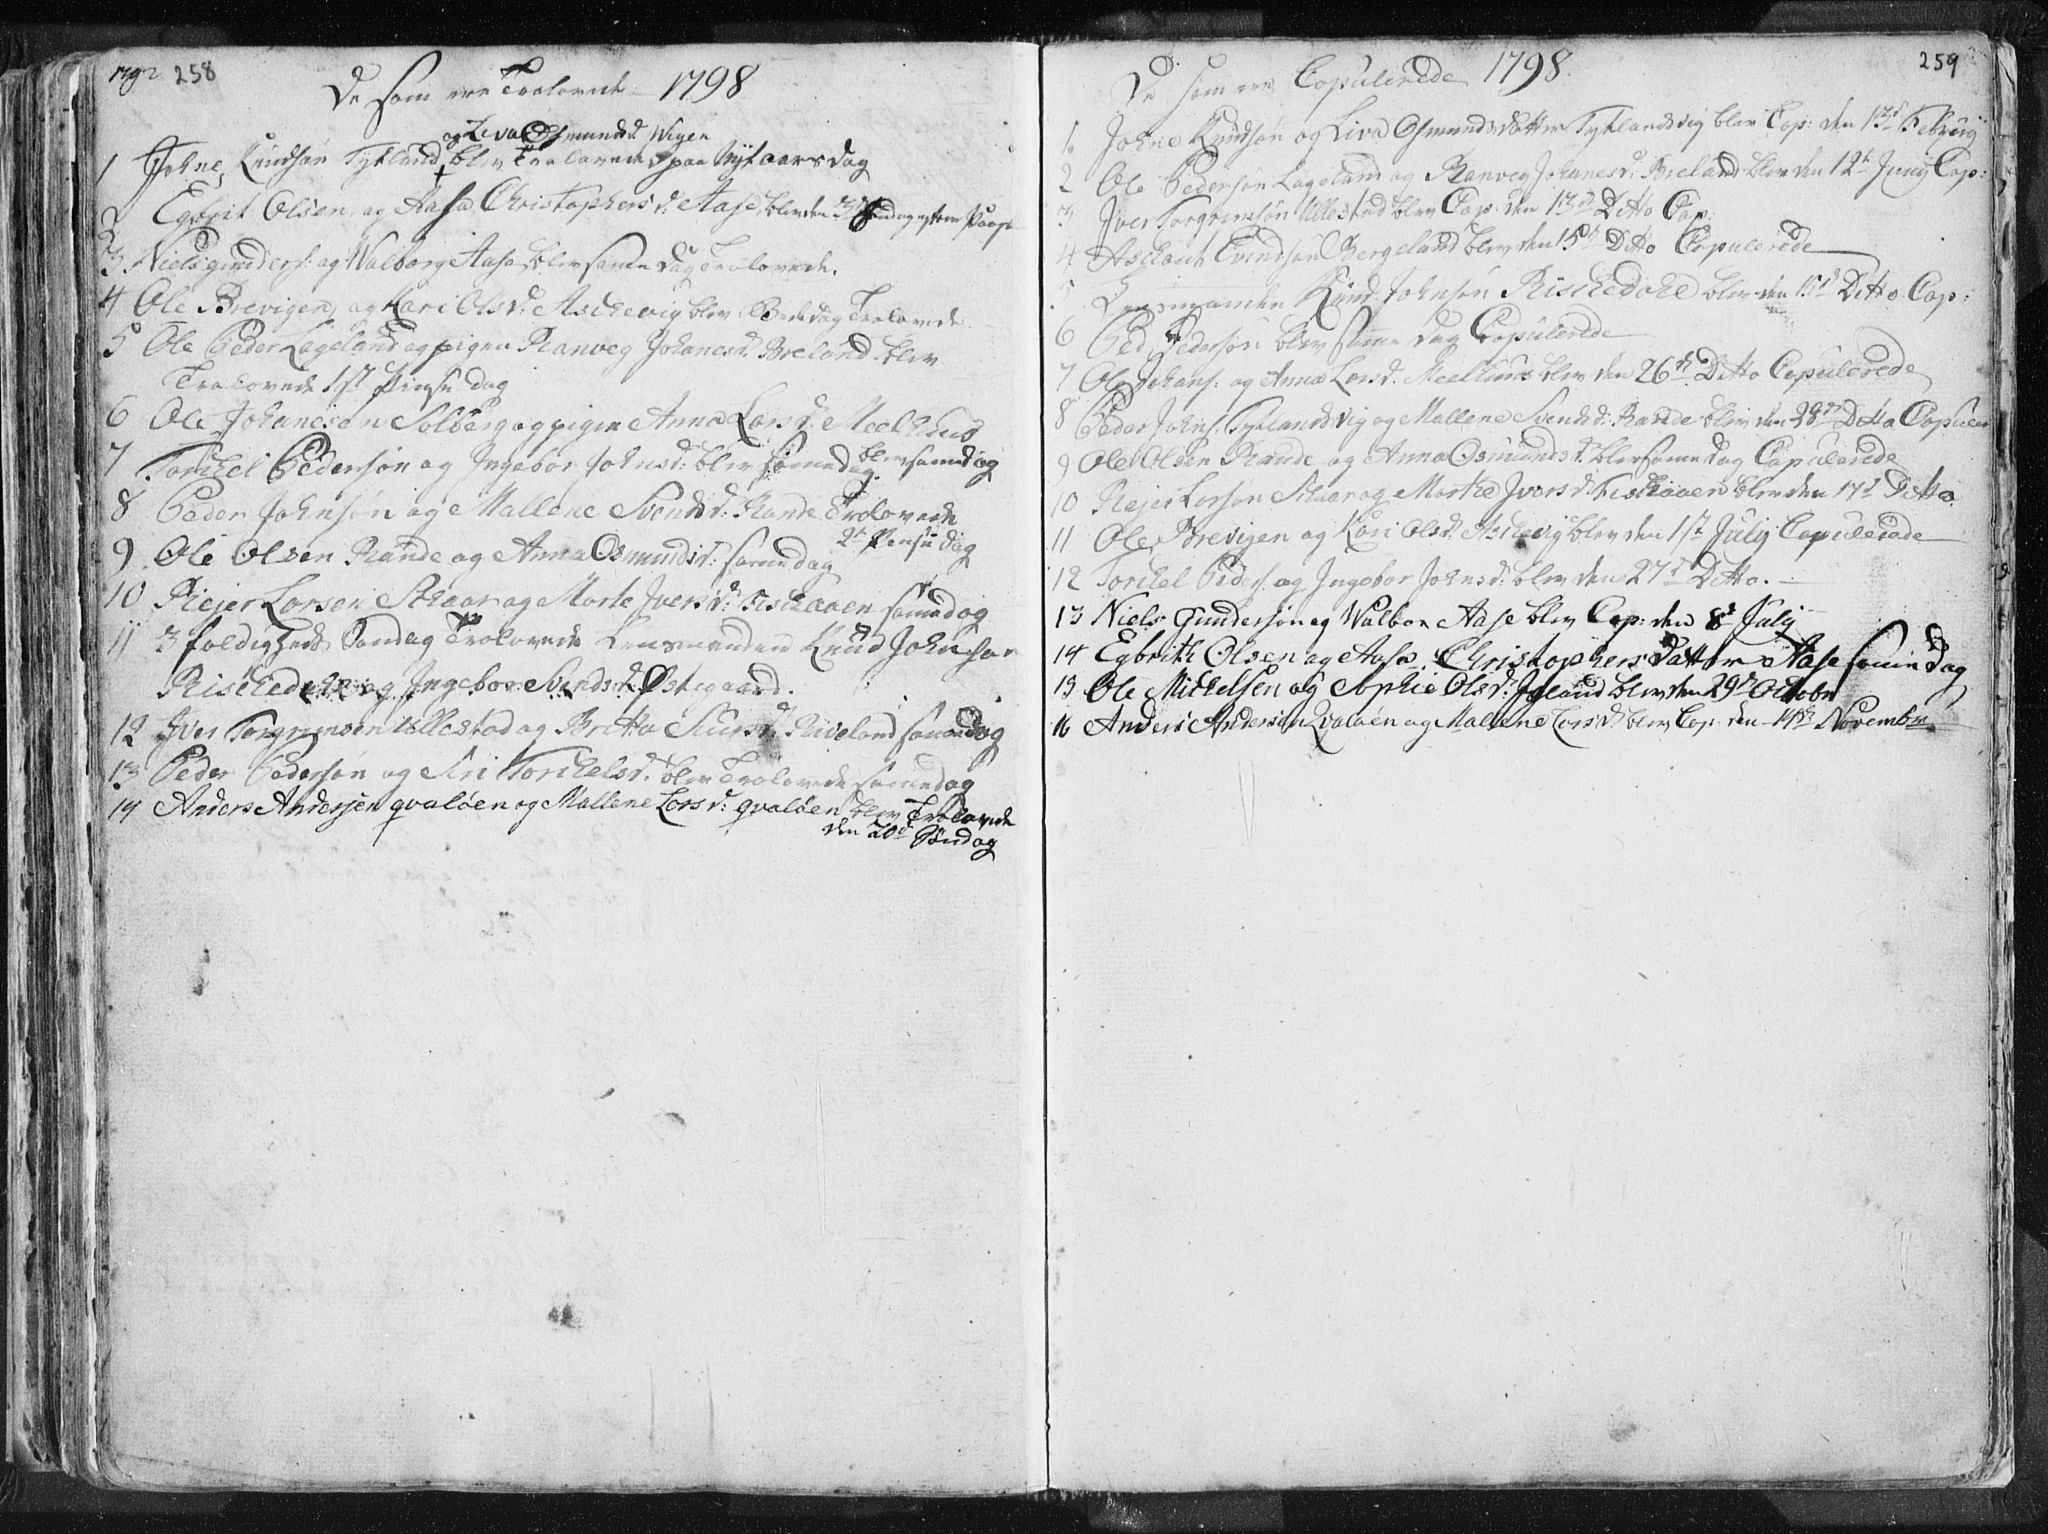 1792 258
De som ere Trolovede 1798
og Liva Osmundsd Wigen
1 Johne Knudsøn Tytland blev Trolovede paa Nytaarsdag
2 Egbrit Olsen og Aasa Christophersd: Aase blev den 3d Søndag efter Paasp
3 Niels gunders: og Walborg Aase blev same dag Trolovede.
4 Ole Brevigen og Kari Olsd: Aschevig blev Bededag Trolovede
5 Ole Peder Lageland og pigen Ranveg Johanesd. Breland blev
Trolovede 1st Pinse dag
6 Ole Johanesøn Solberg og pigen Anna Lorsd. Meelhuus
blev samedag
7 Torchel Pedersøn og Ingebor Johnsd: blev samedag
8 Peder Johnsøn og Mallene Svendsd: Rande Trolovede
2d Pinse dag
9 Ole Olsen Rande og Anna Osmundsd: samedag
10 Reier Lorsen Schaar og Marte Iversd: Fischaaen samedag
11 3foldigheds Søndag Trolovede Lensmanden Knud Johnsøn
Rischedahl og Ingebor Svendsd: Østegaard.
12 Iver Torgrimsen Ullestad og Britta Siursd. Riveland samedag
13 Peder Pedersøn og Siri Torchelsd: blev Trolovede samedag
14 Anders Andersen qvaløen og Mallene Lorsd: qvaløen blev Trolovede
den 20d Søndag
259
De som ere Copulerede 1798.
1 Johne Knudsøn og Liva Osmundsdatter Tytlandsvig blev Cop: den 13d Februarij
2 Ole Pedersøn Lageland og Ranveg Johanesd: Breland blev den 12t Junij Cop:
3 Iver Torgrimsøn Ullestad blev Cop: den 13d Ditto Cop:
4 Aschout Evindsøn Bergeland blev den 15d Ditto Copulerede
5 Lensmanden Knud Johnsøn Rischedahl blev den 15d Ditto Cop:
6 Ped Pedersøn blev same dag Copulerede
7 Ole Johans: og Anna Lorsd. Meelhuus blev den 26d Ditto Copulerede
8 Peder Johns: Tytlandsvig og Mallene Svendsd: Rande blev den 28d Ditto Copuler
9 Ole Olsen Rande og Anna Osmundsd: blev same dag Copulerede
10 Reier Lorsøn Schaar og Marthe Iversd: Fischaaen blev den 17d Ditto
11 Ole Brevigen og Kari Olsd. Aschevig blev den 1st Julij Copulerede
12 Torchel Peders: og Ingebor Johnsd: blev den 27d Ditto.
13 Niels Gundersøn og Walbor Aase blev Cop: den 8d Julij
14 Egbrith Olsen og Aasa Christophersdatter Aase same dag
15 Ole Michelsen og Sophie Olsd: Igland blev den 29d Octobr
16 Anders Andersen Qvaløen og Mallene Lorsd. blev Cop: den 14d Novembr